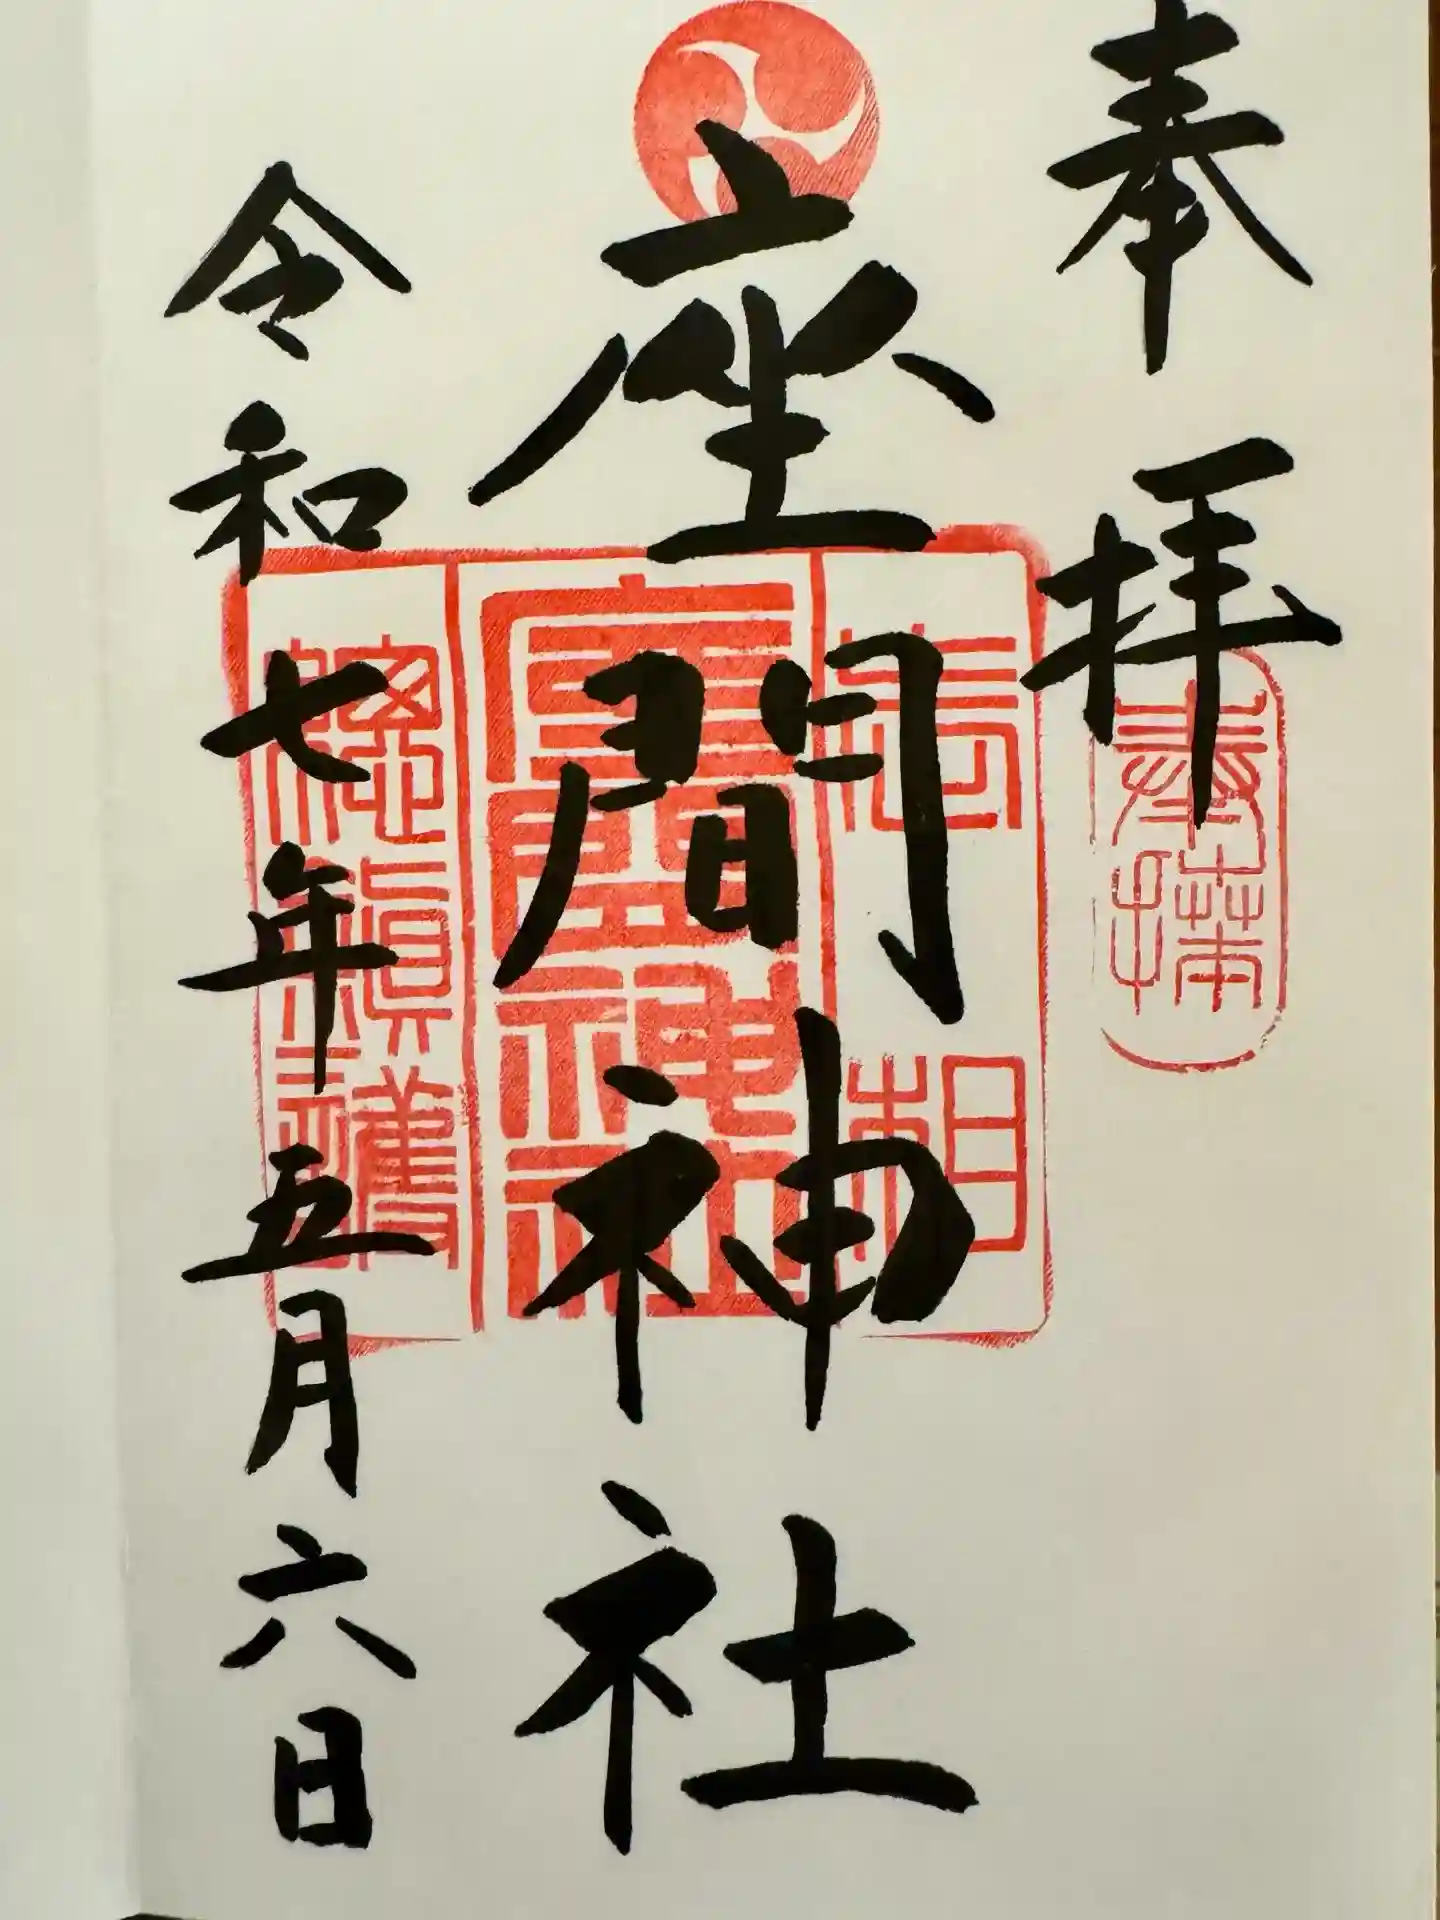 奉拝
奉拝
座間神社
相武
座間神社
総鎮護
令和七年五月六日